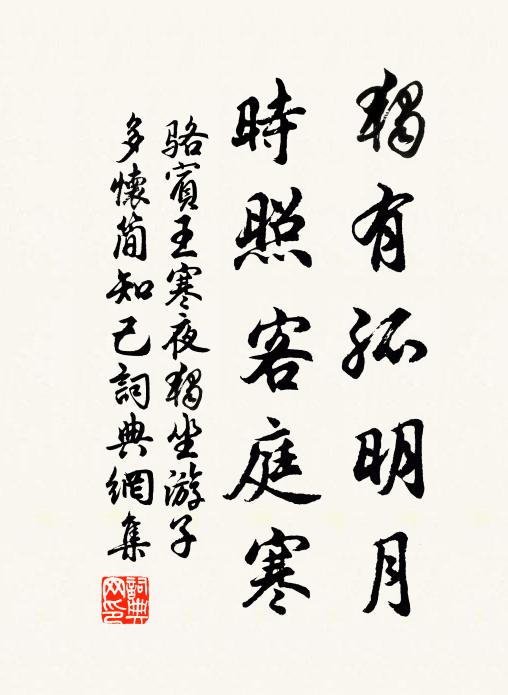 獨有孤明月
時照客庭寒
駱賓王寒夜獨坐游子
多懷簡知己詞典網集
詞典網印